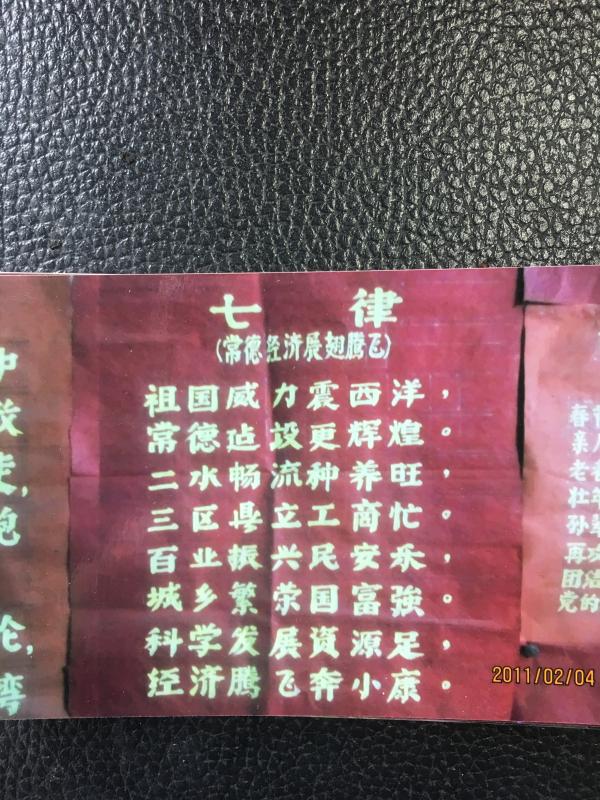 七 律
(常德经济展翅腾飞)
祖国威力震西洋，
常德迠设更辉煌。
二水畅流种养旺，
三区县立工商忙。
百业振兴民安乐，
城乡繁荣国富強。
科学发展資源足，
经济腾飞奔小康。
春
亲
老
壮年
孙
再次
团结
党的
2011/02/04